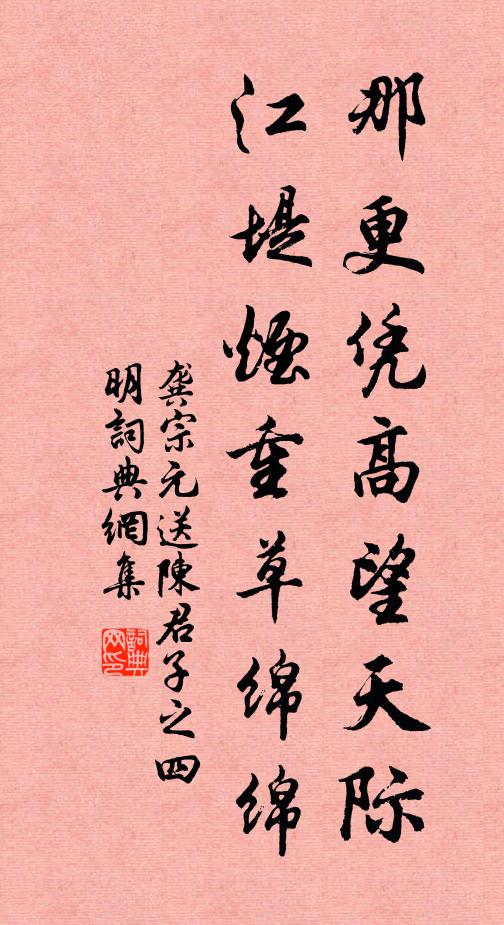 那更凭高望天际
江堤烟重草绵绵
龚宗元送陳君子之四
明詞典網集
詞典网印